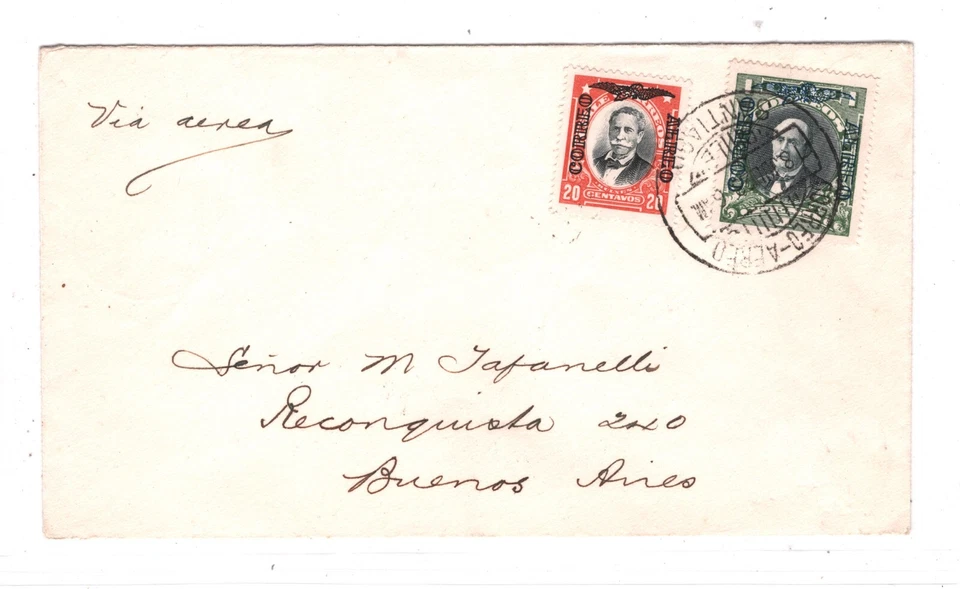 Via aerea
CORREO AEREO
20 CENTAVOS 20
CORREO AEREO
CORREO-AEREO
Señor M Tafanelli
Reconquista 240
Buenos Aires